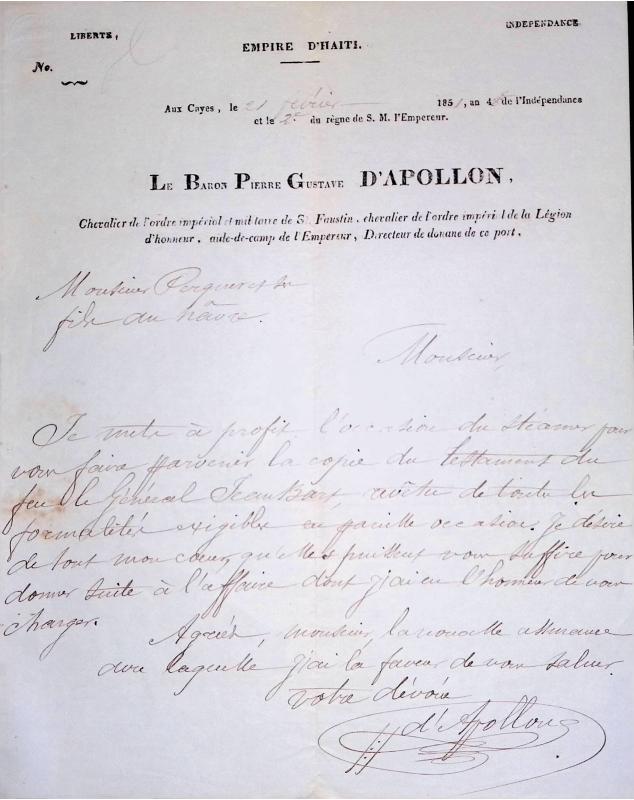 LIBERTE,
INDEPENDANCE
EMPIRE D'HAITI.
No.
Aux Cayes, le 21 février 1851, an 48 de l'Indépendance
et le 2e du règne de S. M. l'Empereur.
LE BARON PIERRE GUSTAVE D'APOLLON,
Chevalier de l'ordre impérial et militaire de St. Faustin, chevalier de l'ordre impérial de la Légion
d'honneur, aide-de-camp de l'Empereur, Directeur de douane de ce port,
Monsieur
fils du hâvre.
Monsieur,
Je mets à profit l'occasion du stéamer pour
vous faire parvenir la copie du testament du
feu le Général Jean Bart, revêtu de toutes les
formalités exigibles en pareille occasion. Je désire
de tout mon cœur, qu'elles puissent vous suffire pour
donner suite à l'affaire dont j'ai eu l'honneur de vous
charger.
Agréez, monsieur, la nouvelle assurance
avec laquelle j'ai la faveur de vous saluer
votre dévoué
d'Apollon